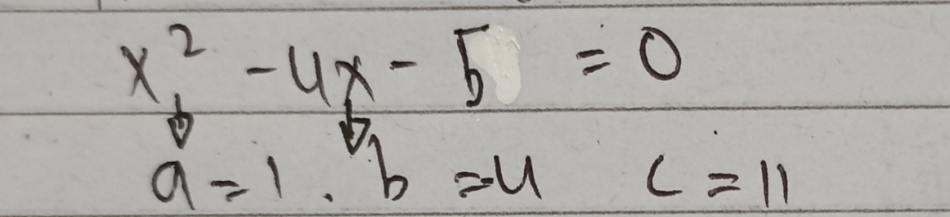 x² - 4x - 5 = 0
a = 1 . b = -4 c = 11